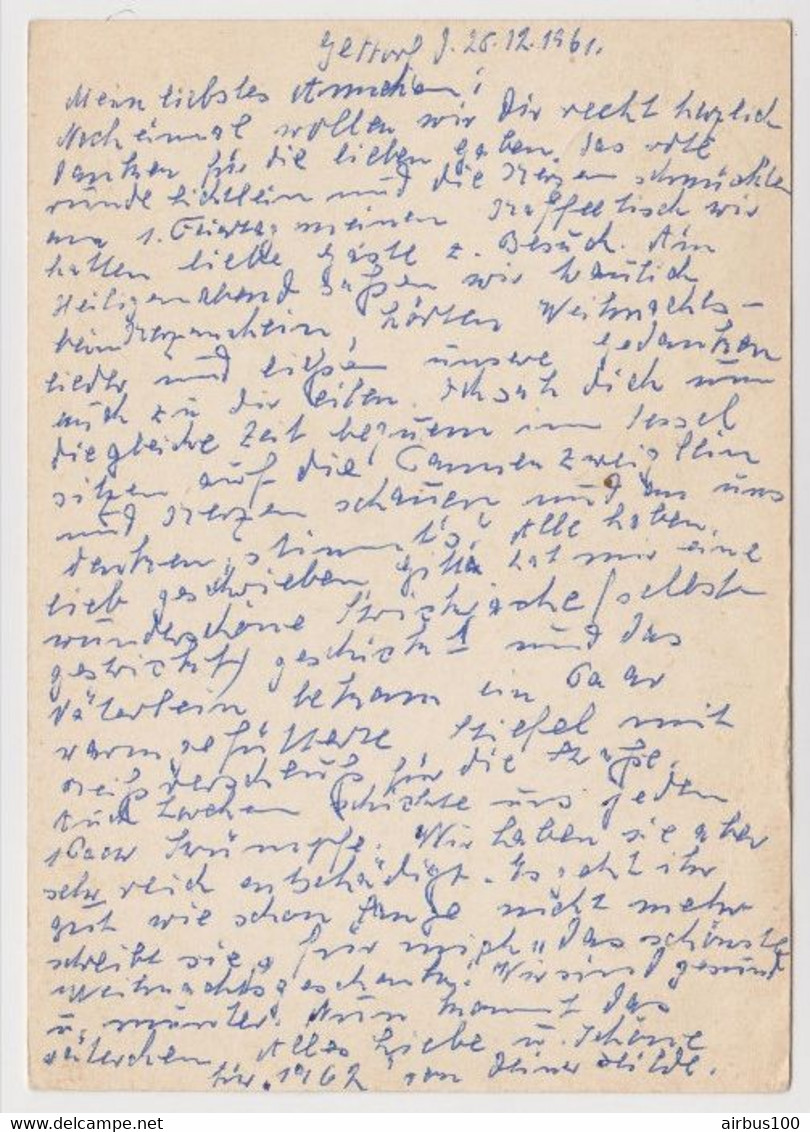 Gettorf d. 26.12.1961.
Mein liebstes Annchen!
Noch einmal wollen wir Dir recht herzlich
danken für die lieben Gaben, das rote
runde Lichtlein und die Kerzen schmückten
am 1. Feiertag meinen Kaffeetisch wir
hatten liebe Gäste z. Besuch. Am
Heiligenabend saßen wir traulich
beim Kerzenschein, hörten Weihnachts-
lieder und ließen unsere Gedanken
auch zu Dir eilen. Ich sah Dich um
die gleiche Zeit bequem im Sessel
sitzen auf die Tannenzweiglein
und Kerzen schauen und an uns
denken, stimmt's? Alle haben
lieb geschrieben, Gitta hat mir eine
wunderschöne Strickjacke (selbst
gestrickt) geschickt! und das
Väterlein bekam ein Paar
warmgefütterte Stiefel mit
Reißverschluß für die Straße.
Auch Lorchen schickte uns jeden
1 Paar Strümpfe. Wir haben sie aber
sehr reich entschädigt. Es geht ihr
gut wie schon lange nicht mehr
schreibt sie, für mich "das schönste
Weihnachtsgeschenk". Wir sind gesund
u. munter. Nun kommt das
Väterchen. Alles Liebe u. Schöne
für 1962 von Deiner Hilde.
airbus100